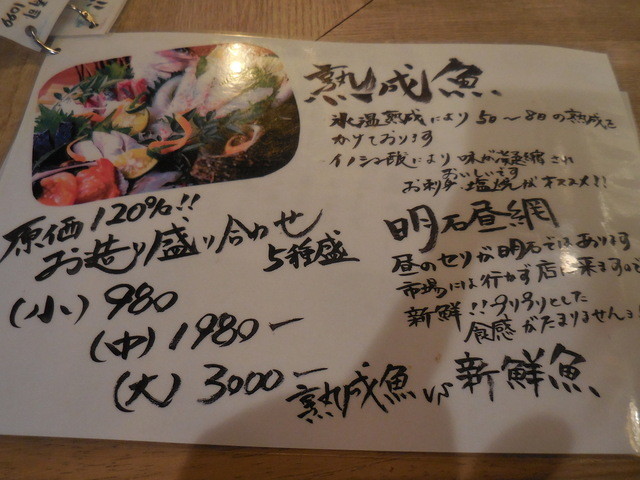 熟成魚
氷温熟成により50〜8日の熟成を
かけております
イノシン酸により味が凝縮され
おいしいです
お刺身、塩焼がオススメ!!
原価120%!!
お造り盛り合わせ
5種盛
(小) 980
(中) 1980-
(大) 3000-
明石昼網
昼のセリが明石ではあります
市場には行かず店に来ますので
新鮮!!プリプリとした
食感がたまりませんョ!
熟成魚 vs 新鮮魚